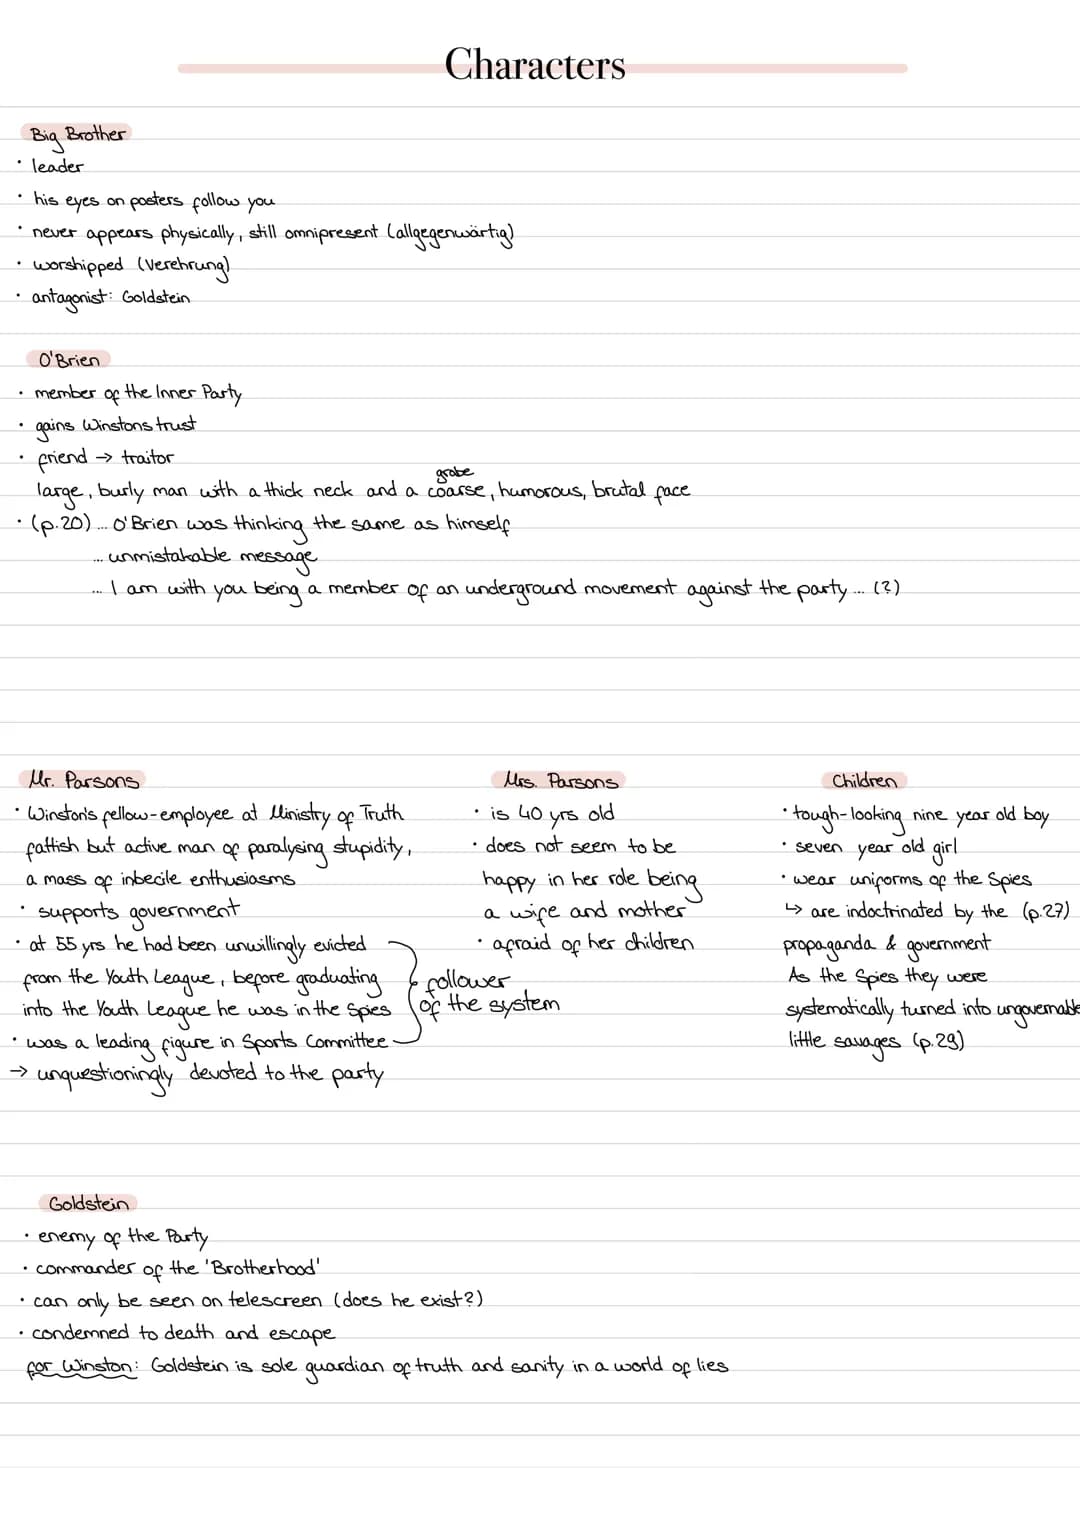 Characters
Big Brother
• leader
• his eyes on posters follow you
• never appears physically, still omnipresent (allgegenwärtig)
• worshipped (Verehrung)
• antagonist: Goldstein
O'Brien
• member of the Inner Party
• gains Winstons trust
• friend → traitor
grobe
large, burly man with a thick neck and a coarse, humorous, brutal face
• (p.20) ... O'Brien was thinking the same as himself
... unmistakable message
... I am with you being a member of an underground movement against the party ... (?)
Mr. Parsons
• Winston's fellow-employee at Ministry of Truth
fattish but active man of paralysing stupidity,
a mass of inbecile enthusiasms
• supports government
• at 55 yrs he had been unwillingly evicted
from the Youth League, before graduating
into the Youth League he was in the Spies
• was a leading figure in Sports Committee
→ unquestioningly devoted to the party
follower
of the system
Mrs. Parsons
• is 40 yrs old
• does not seem to be
happy in her role being
a wife and mother
• afraid of her children
Children
• tough-looking nine year old boy
• seven year old girl
• wear uniforms of the Spies
↳ are indoctrinated by the (p.27)
propaganda & government
As the Spies they were
systematically turned into ungovernable
little savages (p.29)
Goldstein
• enemy of the Party
• commander of the 'Brotherhood'
• can only be seen on telescreen (does he exist?)
• condemned to death and escape
for Winston: Goldstein is sole guardian of truth and sanity in a world of lies